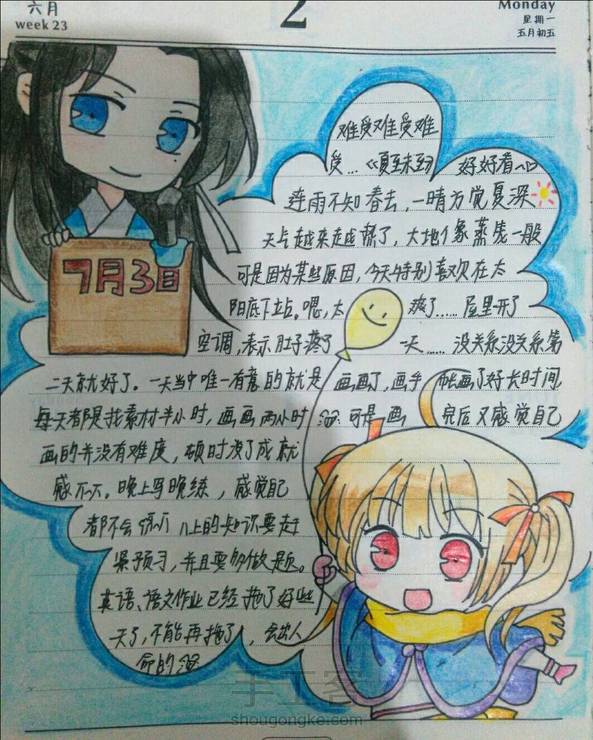 六月
week 23
2
Monday
星期一
五月初五
7月3日
难受难受难
受…《夏至未至》好好看~
连雨不知春去,一晴方觉夏深
天气越来越热了,大地像蒸笼一般
可是因为某些原因,今天特别喜欢在太
阳底下站。嗯,太热了……屋里开了
空调,表示肚子疼了一天……没关系没关系第
二天就好了。一天当中唯一有意的就是画画了,画手帐画了好长时间
每天都是找素材半小时,画画两小时 可是画完后又感觉自己
画的并没有难度,顿时没了成就
感不不。晚上写晚练,感觉自己
都不会 上的知识要赶
紧预习,并且要多做题。
英语、语文作业已经拖了好些
天了,不能再拖了,会出人
命的
手工客
shougongke.com